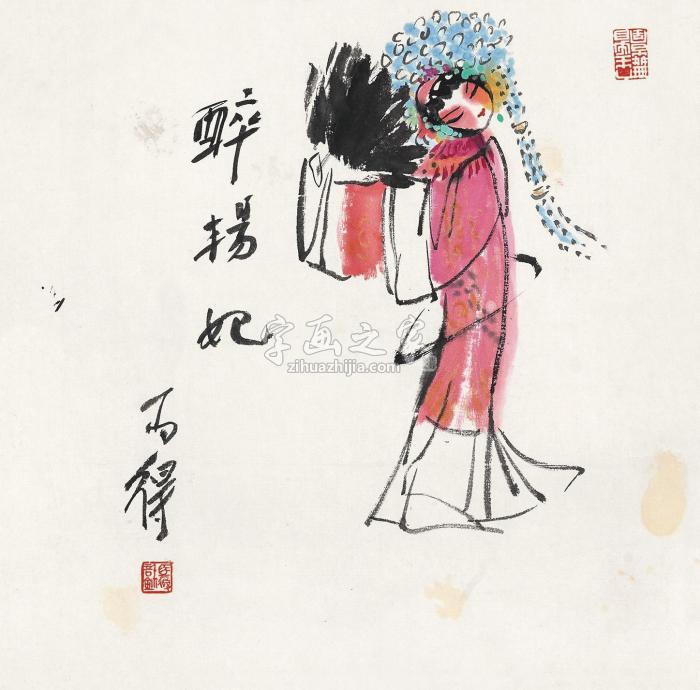 醉楊妃
马得
字画之家
zihuazhijia.com